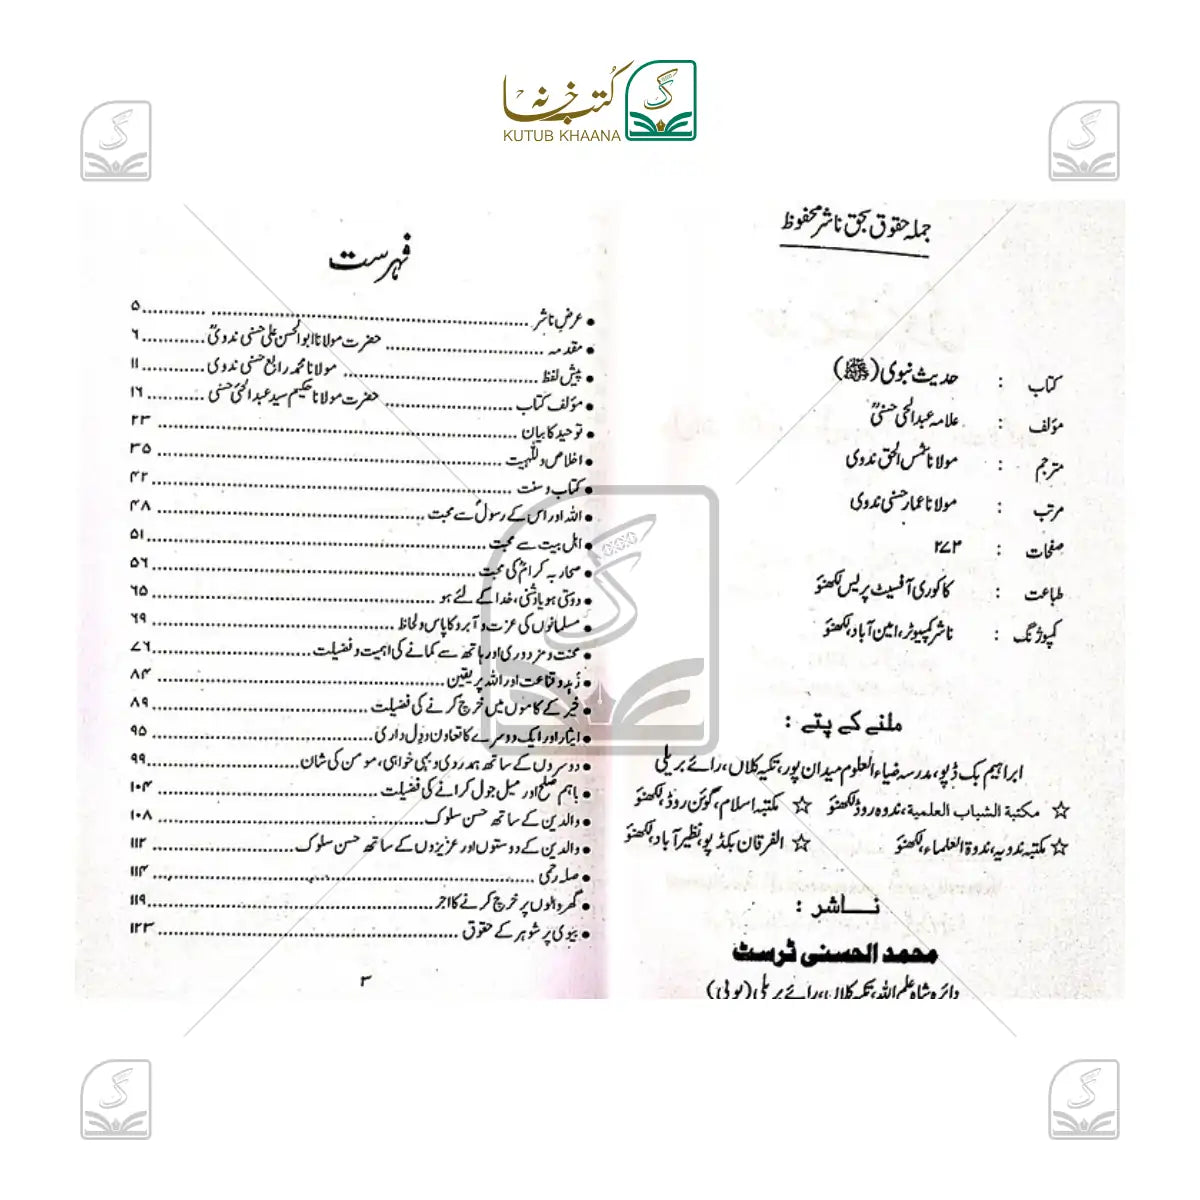 کتب خانہ
KUTUB KHAANA
جملہ حقوق بحق ناشر محفوظ
کتاب : حدیث نبوی (ﷺ)
مؤلف : علامہ عبدالحی حسنیؒ
مترجم : مولانا شمس الحق ندوی
مرتب : مولانا عمار حسنی ندوی
صفحات : ۲۷۳
طباعت : کاکوری آفسیٹ پریس لکھنؤ
کمپوزنگ : ناشر کمپیوٹر، امین آباد، لکھنؤ
ملنے کے پتے :
ابراہیم بک ڈپو، مدرسہ ضیاء العلوم میدان پور، تکیہ کلاں، رائے بریلی
☆ مکتبة الشباب العلمیة، ندوہ روڈ لکھنؤ ☆ مکتبہ اسلام، گوئن روڈ، لکھنؤ
☆ مکتبہ ندویہ، ندوۃ العلماء، لکھنؤ ☆ الفرقان بکڈپو، نظیر آباد، لکھنؤ
ناشر :
محمد الحسنی ٹرسٹ
دائرہ شاہ علم اللہ، تکیہ کلاں، رائے بریلی (یوپی)
فہرست
● عرض ناشر ........ ۵
● مقدمہ ........ حضرت مولانا ابوالحسن علی حسنی ندویؒ ........ ۶
● پیش لفظ ........ مولانا محمد رابع حسنی ندوی ........ ۱۱
● مؤلف کتاب ........ حضرت مولانا حکیم سید عبدالحی حسنیؒ ........ ۱۶
● توحید کا بیان ........ ۲۳
● اخلاص و للہیت ........ ۳۵
● کتاب و سنت ........ ۴۲
● اللہ اور اس کے رسولؐ سے محبت ........ ۴۸
● اہل بیت سے محبت ........ ۵۱
● صحابہ کرامؓ کی محبت ........ ۵۶
● دوستی ہو یا دشمنی، خدا کے لئے ہو ........ ۶۵
● مسلمانوں کی عزت و آبرو کا پاس و لحاظ ........ ۶۹
● محنت و مزدوری اور ہاتھ سے کمانے کی اہمیت و فضیلت ........ ۷۶
● زُہد و قناعت اور اللہ پر یقین ........ ۸۴
● خیر کے کاموں میں خرچ کرنے کی فضیلت ........ ۸۹
● ایثار اور ایک دوسرے کا تعاون و دل داری ........ ۹۵
● دوسروں کے ساتھ ہمدردی و بہی خواہی، مومن کی شان ........ ۹۹
● باہم صلح اور میل جول کرانے کی فضیلت ........ ۱۰۴
● والدین کے ساتھ حسن سلوک ........ ۱۰۸
● والدین کے دوستوں اور عزیزوں کے ساتھ حسن سلوک ........ ۱۱۲
● صلہ رحمی ........ ۱۱۴
● گھر والوں پر خرچ کرنے کا اجر ........ ۱۱۹
● بیوی پر شوہر کے حقوق ........ ۱۲۳
۳